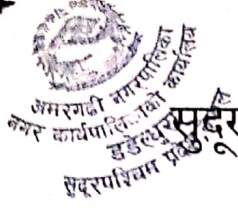 अमरगढी नगरपालिका
नगर कार्यपालिकाको कार्यालय
डडेल्धुरा
सुदूर
सुदूरपश्चिम